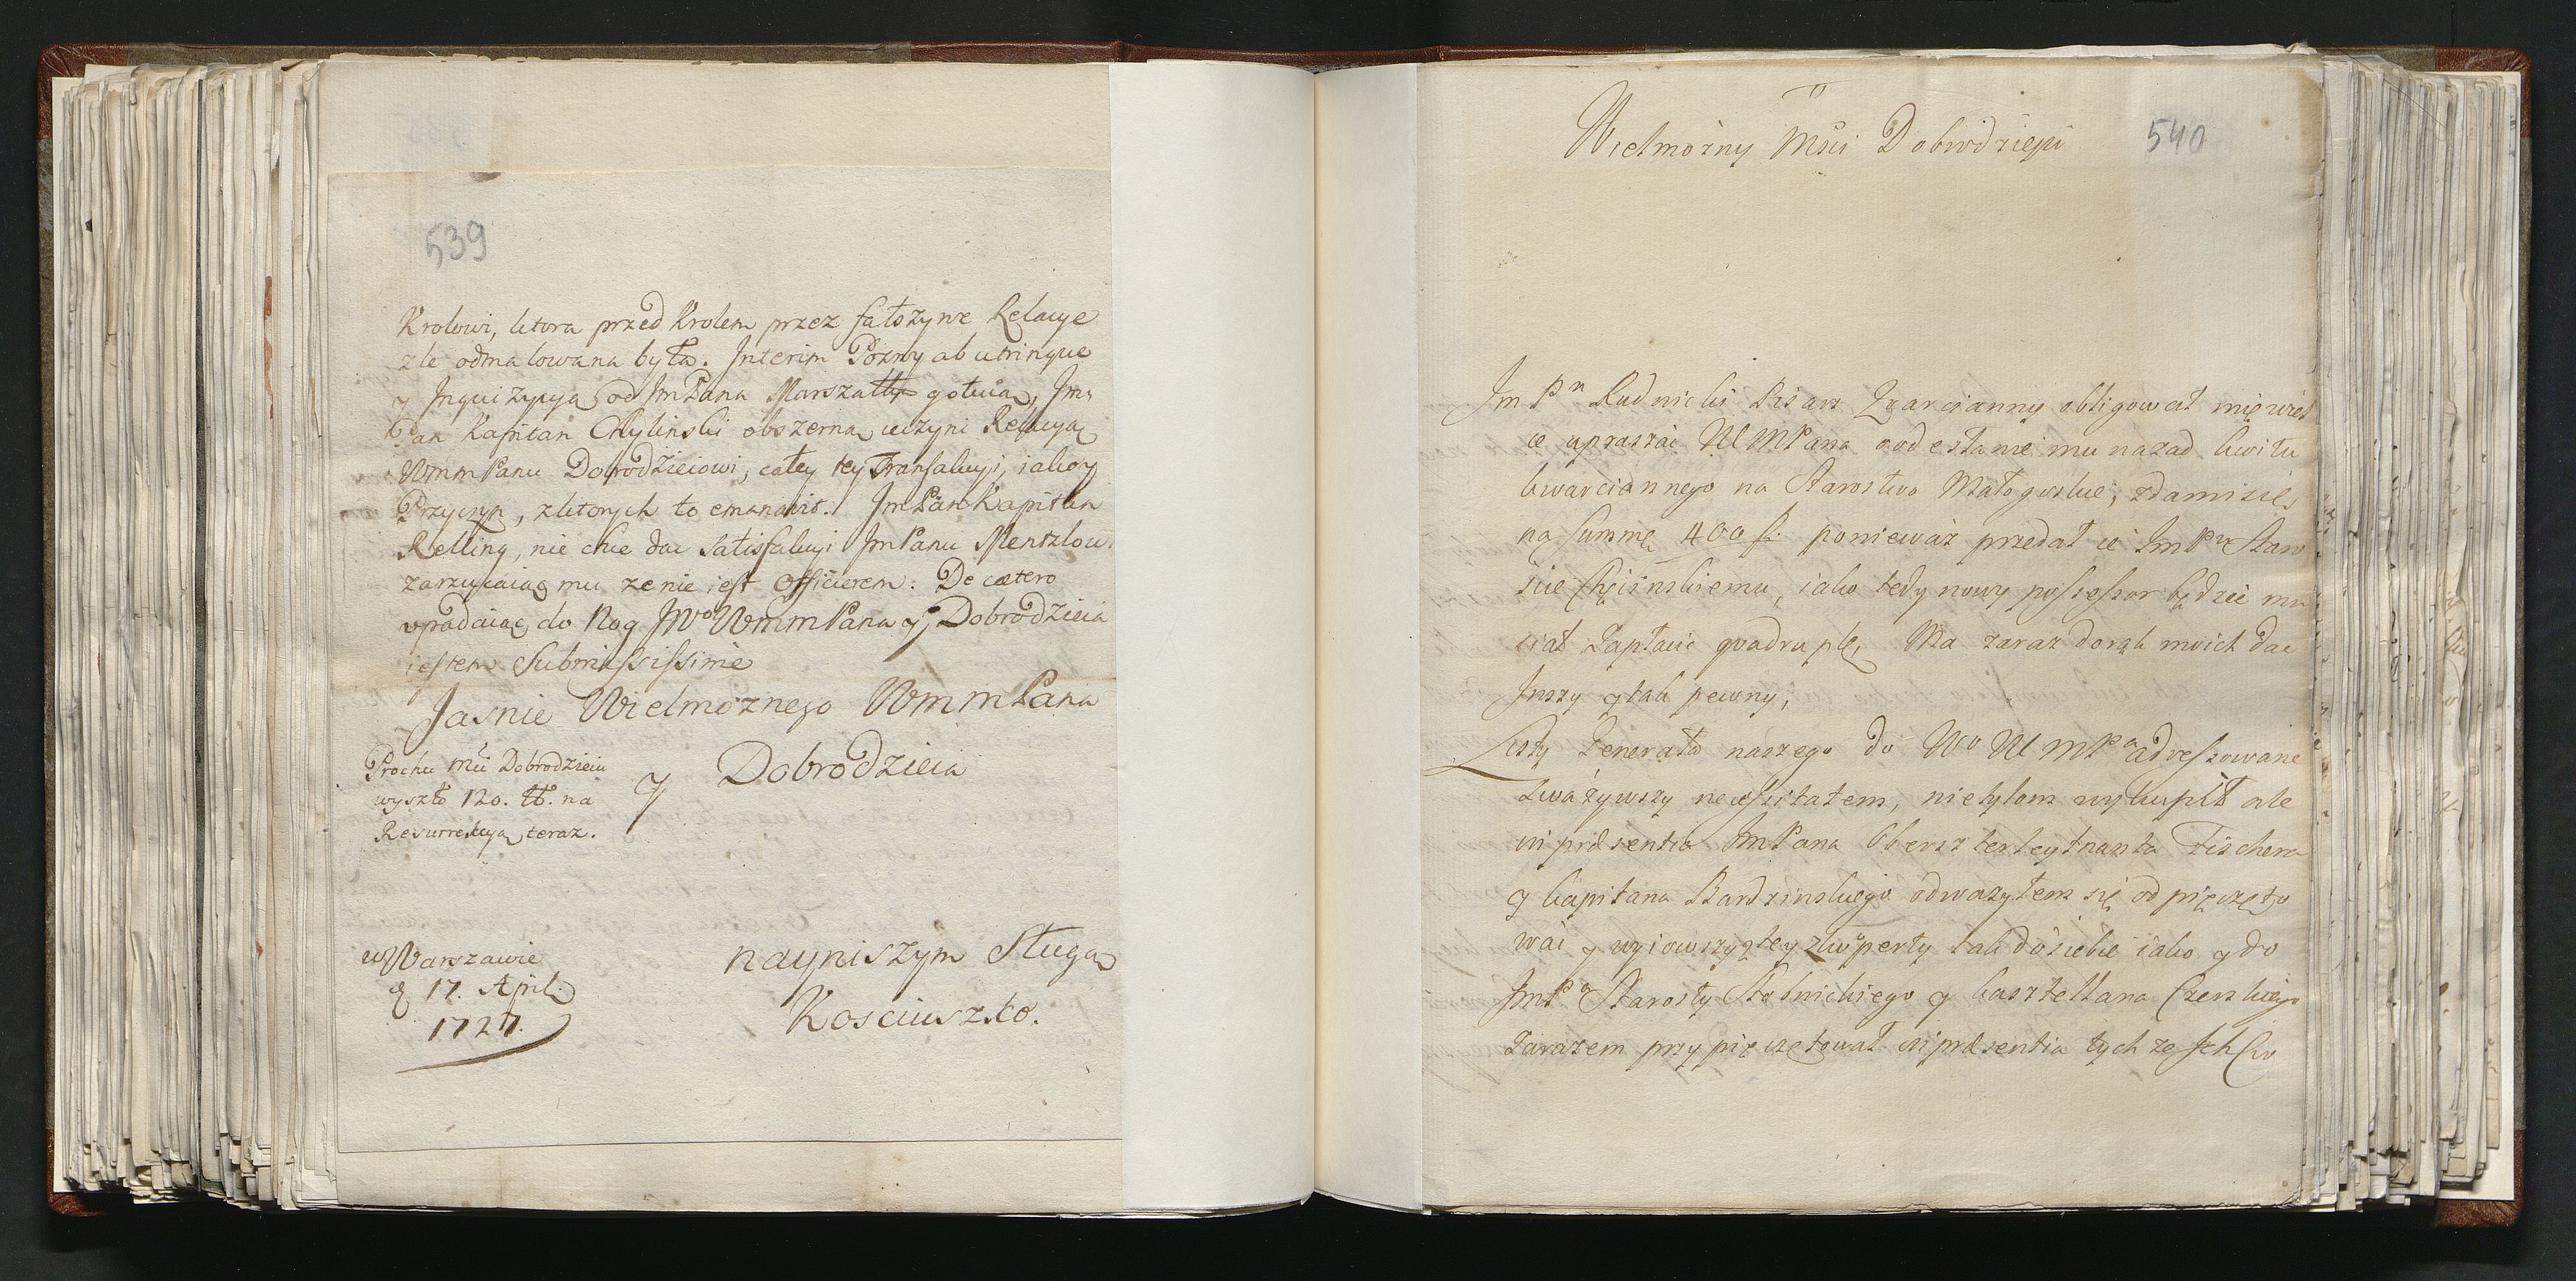 539
Krolowi, ktora przed Krolem przez fałszywe Relacye
zle odmalowana była. Interim Pozwy ab utrinque
y Inquizycyą od ImPana Marszałka gotuią, Im
Pan Kapitan Chylinski obszerną uczyni Relacyą
WmmPanu Dobrodzieiowi, całey tey Transakcyi, iako y
Przyczyn, z ktorych to emanavit. ImPan Kapitan
Relling, nie chce dac Satisfakcyi ImPanu
zarzucaiąc mu ze nie iest Officierem. De cætero
vpadaiąc do Nog JWo WmmPana y Dobrodzieia
iestem Submissisimè
Jasnie Wielmoznego WmmPana
y Dobrodzieia
Prochu Mći Dobrodzieiu
wyszło 120. ℔. na
Resurrekcyą teraz.
nayniszym Sługą
Kosciuszko.
w Warszawie
d 17. April.
1727.
540
Wielmożny Mści Dobrodzieju
Im Pn Rudnicki Pisarz obligował mię
upraszać WMPana o odesłanie mu nazad kwitu
kwarciannego na Starostwo Małoguskie,
na summę 400 f. ponieważ przedał ie ImPu Staro
ście Chęcinskiemu, iako tedy nowy possessor będzie mu
siał zapłacic quadruplę, Ma zaraz do rąk moich dac
Inszy y tak pewny,
Listy Generała naszego do Wo WMPa adressowane
zważywszy necessitatem, nietylom wykupił ale
in præsentia ImPana Oberszterleytnanta Fischera
y kapitana Bardzinskiego odważyłem się odpieczęto
wać y wyiowszy z tey koperty tak do siebie iako y do
ImPa Starosty Stobnickiego y kasztellana Czerskiego
zarazem przypieczętował in præsentia tychze